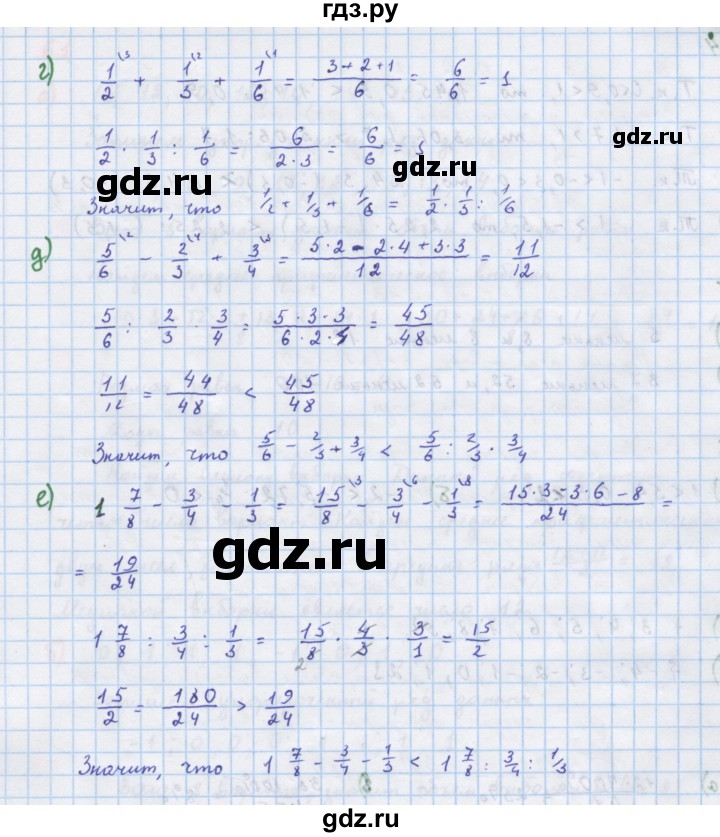 гдз.ру
г) 1/2\3 + 1/3\2 + 1/6\1 = (3+2+1)/6 = 6/6 = 1
1/2 · 1/3 : 1/6 = 6/(2·3) = 6/6 = 1
Значит, что 1/2 + 1/3 + 1/6 = 1/2 · 1/3 : 1/6
д) 5/6\2 − 2/3\4 + 3/4\3 = (5·2 − 2·4 + 3·3)/12 = 11/12
5/6 : 2/3 · 3/4 = (5·3·3)/(6·2·4) = 45/48
11/12 = 44/48 < 45/48
Значит, что 5/6 − 2/3 + 3/4 < 5/6 : 2/3 · 3/4
е) 1 7/8 − 3/4 − 1/3 = 15/8\3 − 3/4\6 − 1/3\8 = (15·3−3·6−8)/24 =
= 19/24
gdz.ru
1 7/8 : 3/4 : 1/3 = 15/8 2 · 4/3 · 3/1 = 15/2
15/2 = 180/24 > 19/24
Значит, что 1 7/8 − 3/4 − 1/3 < 1 7/8 : 3/4 : 1/3
gdz.ru